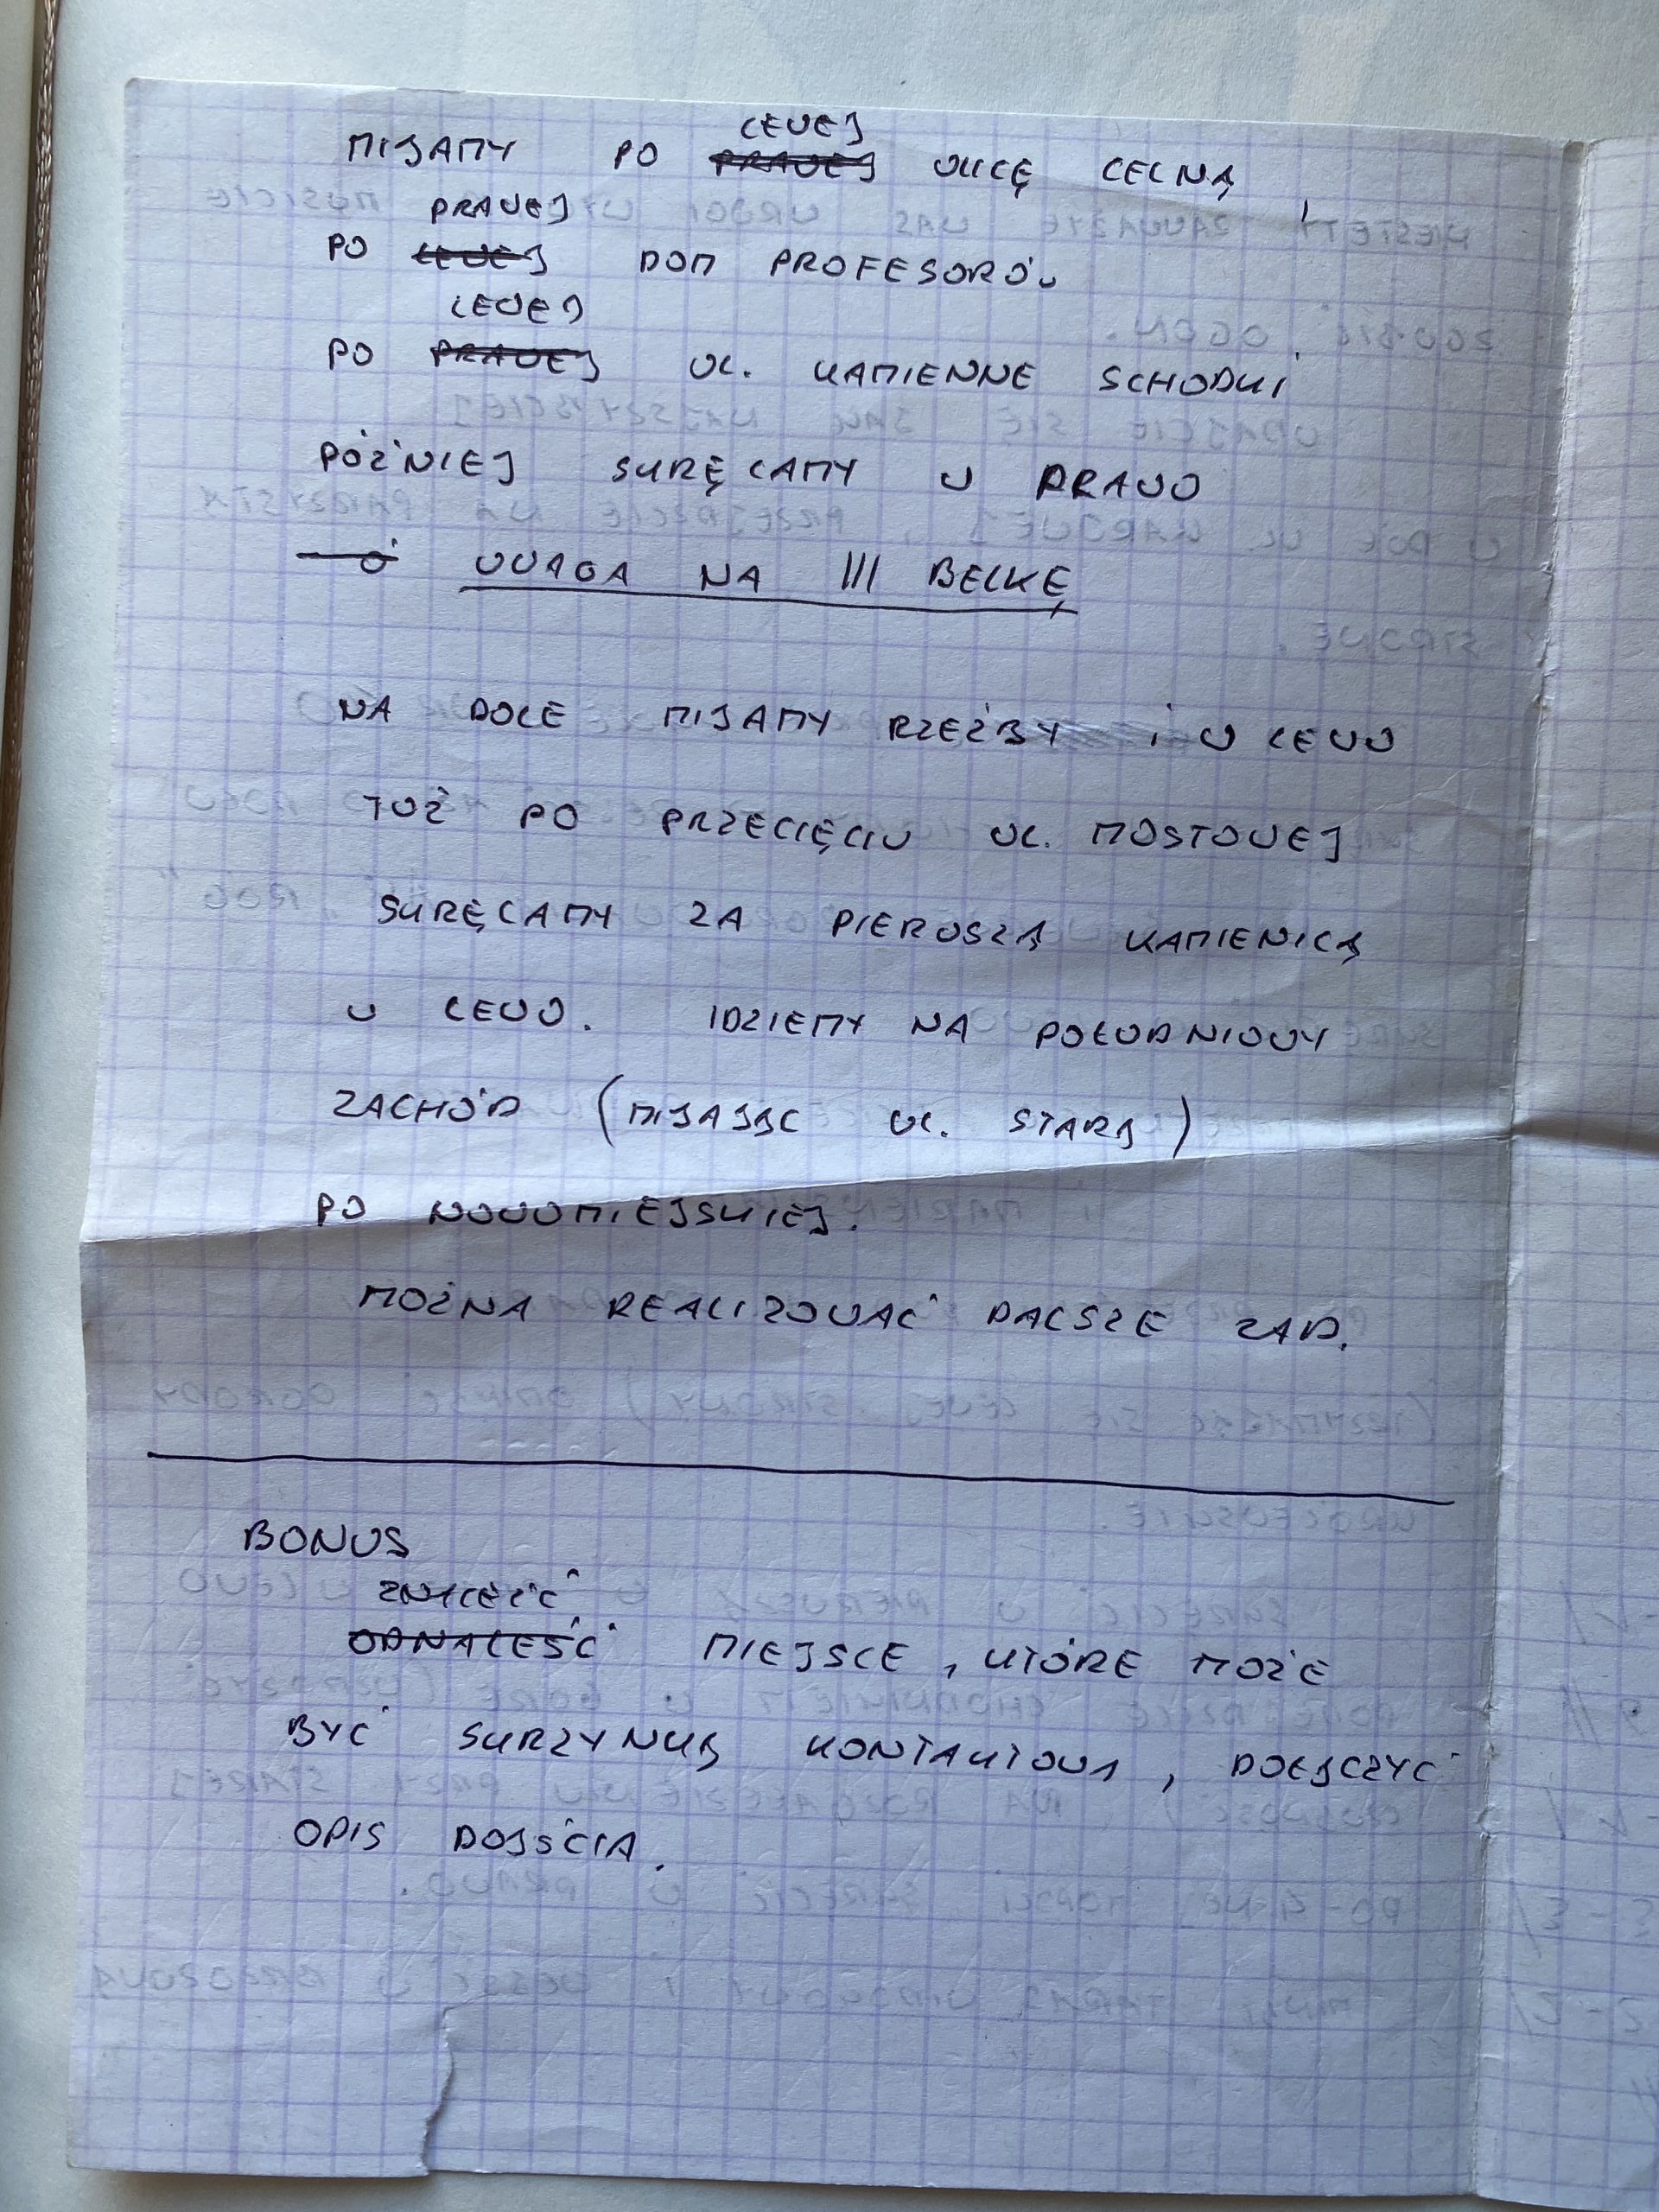 LEWEJ
MIJAMY PO PRAWEJ ULICĘ CELNĄ,
PRAWEJ
PO LEWEJ DOM PROFESORÓW
LEWEJ
PO PRAWEJ UL. KAMIENNE SCHODKI
PÓŹNIEJ SKRĘCAMY W PRAWO
UWAGA NA III BELKĘ
NA DOLE MIJAMY RZEŹBY I W LEWO
TUŻ PO PRZECIĘCIU UL. MOSTOWEJ
SKRĘCAMY ZA PIERWSZĄ KAMIENICĄ
W LEWO. IDZIEMY NA POŁUDNIOWY
ZACHÓD (MIJAJĄC UL. STARĄ)
PO NOWOMIEJSKIEJ.
MOŻNA REALIZOWAĆ DALSZE ZAD.
BONUS
ZNALEŹĆ
ODNALEŚĆ MIEJSCE, KTÓRE MOŻE
BYĆ SKRZYNKĄ KONTAKTOWĄ, DOŁĄCZYĆ
OPIS DOJŚCIA.